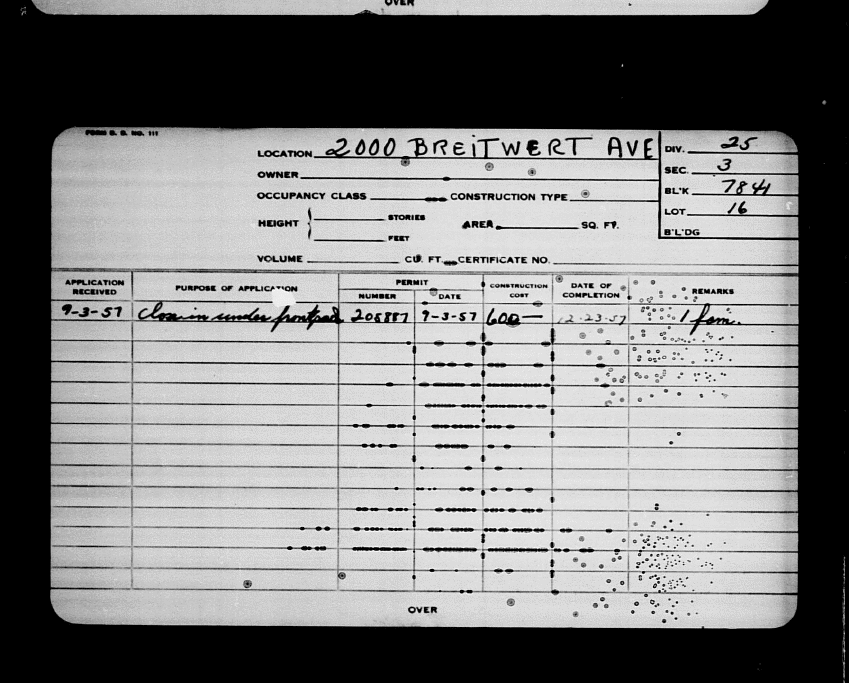 OVER
FORM B. D. NO. 111
LOCATION 2000 BREITWERT AVE
DIV. 25
OWNER
SEC. 3
OCCUPANCY CLASS CONSTRUCTION TYPE
BL'K 7841
HEIGHT { STORIES AREA SQ. FT.
LOT 16
FEET
B'L'DG
VOLUME CU. FT. CERTIFICATE NO.
APPLICATION RECEIVED PURPOSE OF APPLICATION PERMIT NUMBER DATE CONSTRUCTION COST DATE OF COMPLETION REMARKS
9-3-57 Close in under front 9-3-57 600— 12-23-57 1 fam.
OVER